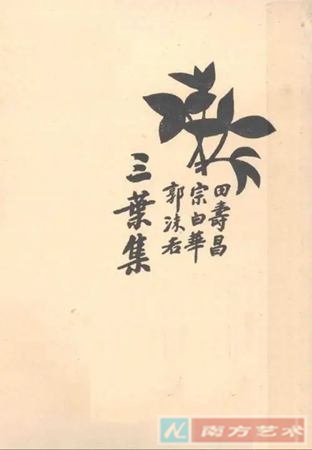 田壽昌
宗白華
郭沫若
三葉集
南方艺术